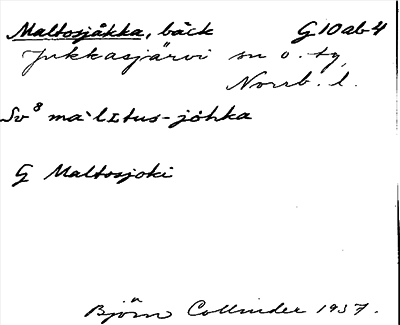 Maltosjåkka, bäck G 10 ab 4
Jukkasjärvi sn o. tg,
Norrb. l.
Sv⁸ ma`lɪtus-jöhka
G Maltosjoki
Björn Collinder 1937.